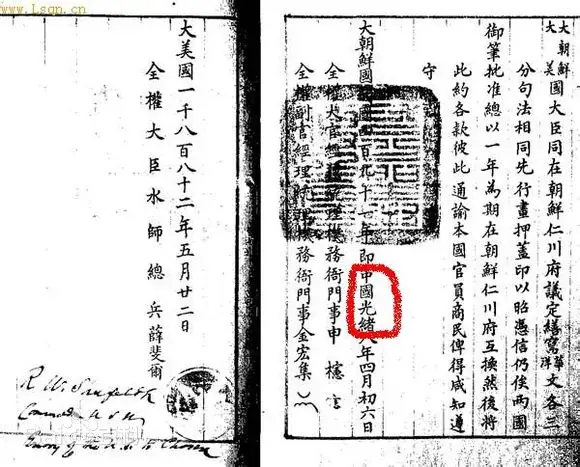 www.Lsqn.cn
大朝鮮
大美
國大臣同在朝鮮仁川府議定繕寫華洋文各三
分句法相同先行畫押蓋印以昭憑信仍俟兩國
御筆批准總以一年為期在朝鮮仁川府互換然後將
此約各款彼此通諭本國官員商民俾得咸知遵
守
大朝鮮國 四百九十一年即中國光緒八年四月初六日
全權大官經理統理機務衙門事申櫶
全權副官經理統理機務衙門事金宏集
大美國一千八百八十二年五月廿二日
全權大臣水師總兵薛斐爾
R. W. Shufeldt
Commodore U.S.N.
Envoy of the U.S. to Chosen